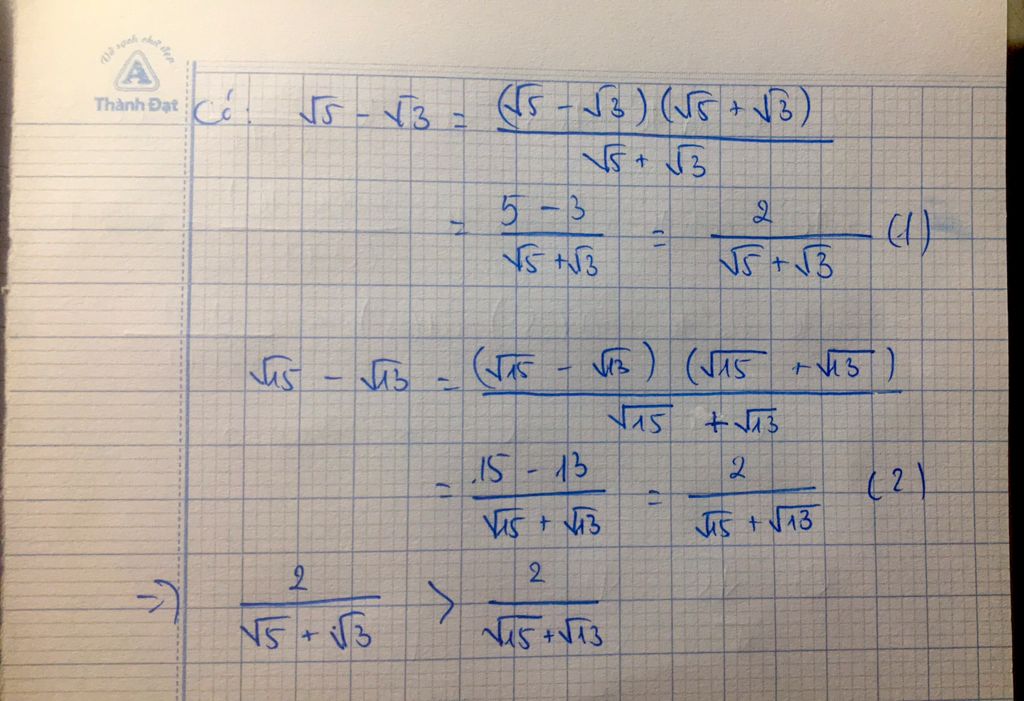 Vở sạch chữ đẹp
A
Thành Đạt
Có: √5 - √3 = (√5 - √3)(√5 + √3) / √5 + √3
= 5 - 3 / √5 + √3 = 2 / √5 + √3 (1)
√15 - √13 = (√15 - √13) (√15 + √13) / √15 + √13
= 15 - 13 / √15 + √13 = 2 / √15 + √13 (2)
=> 2 / √5 + √3 > 2 / √15 + √13